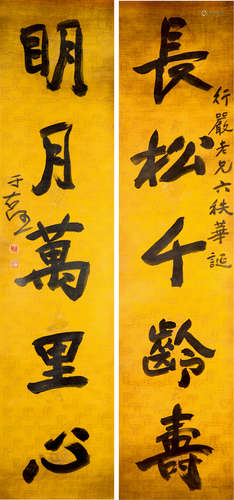 長松千齡壽
行嚴老兄六秩華誕
明月萬里心
于右任